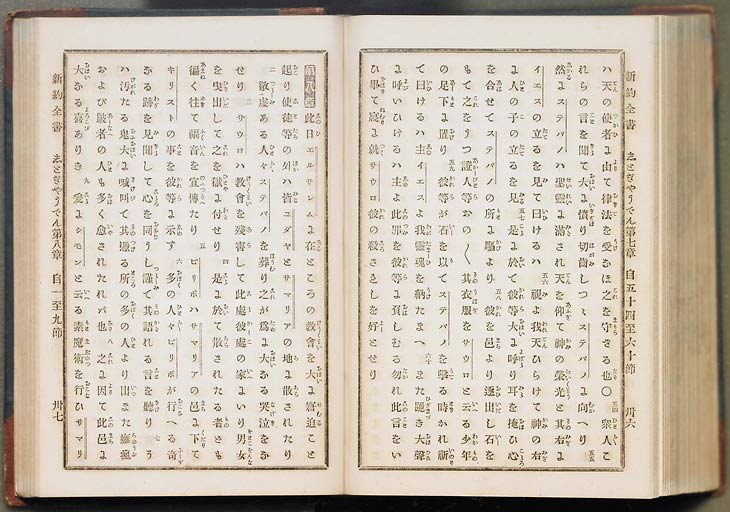 新約全書 志とぎやうでん第七章 自五十四至六十節 卅六
ハ天の使者に由て律法を受なほ之を守ざる也〇 五四 衆人こ
れらの言を聞て大に憤り切齒しつゝステパノに向へり 五五
然にステパノハ聖靈に滿され天を仰て神の榮光と其右に
イエスの立るを見て曰けるハ 五六 視よ我天ひらけて神の右
に人の子の立るを見 五七 是に於て彼等大に呼り耳を掩ひ心
を合せてステパノの所に驅より 五八 彼を邑より逐出し石を
もて之をうつ證人等かの〱其衣服をサウロと云る少年
の足下に置り 五九 彼等が石を以てステパノを擊る時かれ祈
て曰けるハ主イエスよ我靈魂を納たまへ 六十 また跪き大聲
に呼いひけるハ主よ此罪を彼等に負しむる勿れ此言をい
ひ畢て寢に就サウロ彼の殺さるゝを好とせり
新約全書 志とぎやうでん第八章 自一至九節 卅七
第八章 此日エルサレムに在ところの教會を大に窘迫こと
起り使徒等の外ハ皆ユダヤとサマリアの地に散されたり
二 敬虔ある人々ステパノを葬り之が爲に大なる哭泣をな
せり 三 サウロハ教會を殘害して此處彼處の家にいり男女
を曳出して之を獄に付せり 四 是に於て散されたる者ども
徧く往て福音を宣傳たり 五 ピリポハサマリアの邑に下て
キリストの事を彼等に示す 六 多の人々ピリポが行へる奇
なる跡を見聞して心を同うし謹て其語れる言を聽り 七 そ
ハ汚たる鬼大に喊叫て其憑る所の多の人より出また癱瘋
および跛者の人も多く愈されたれバ也 八 之に因て此邑に
大なる喜ありき 九 爰にシモンと云る素魔術を行ひサマリ